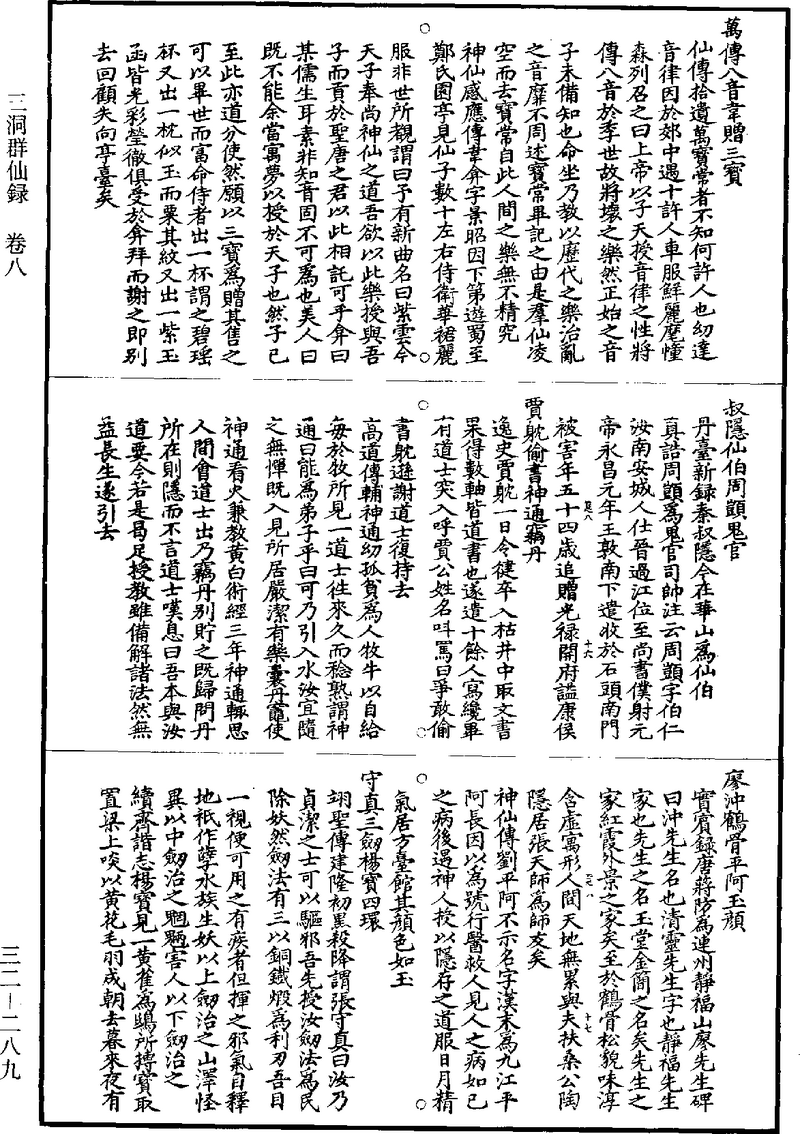 萬傳八音韋贈三寶
仙傳拾遺萬寶常者不知何許人也幼達
音律因於郊中遇十許人車服鮮麗麾幢
森列召之曰上帝以子天授音律之性將
傳八音於季世故將壞之樂然正始之音
子未備知也命坐乃教以歷代之樂治亂
之音靡不周述寶常畢記之由是羣仙凌
空而去寶常自此人間之樂無不精究
神仙感應傳韋弇字景昭因下第遊蜀至
鄭氏園亭見仙子數十左右侍衛華裙麗
服非世所覩謂曰予有新曲名曰紫雲今
天子奉尚神仙之道吾欲以此樂授與吾
子而貢於聖唐之君以此相託可乎弇曰
某儒生耳素非知音固不可為也美人曰
既不能余當寓夢以授於天子也然子已
至此亦道分使然願以三寶為贈其售之
可以畢世而富命侍者出一杯謂之碧瑶
杯又出一枕似玉而粟其紋又出一紫玉
函皆光彩瑩徹俱受於弇拜而謝之即别
去回顧失向亭臺矣
叔隱仙伯周顗鬼官
丹臺新録秦叔隱今在華山為仙伯
真誥周顗為鬼官司帥注云周顗字伯仁
汝南安城人仕晉過江位至尚書僕射元
帝永昌元年王敦南下遣收於石頭南門
被害年五十四歳追贈光禄開府謚康侯
賈躭偷書神通竊丹
逸史賈躭一日令健卒入枯井中取文書
果得數軸皆道書也遂遣十餘人寫纔畢
有道士突入呼賈公姓名叫罵曰爭敢偷
書躭遜謝道士復持去
高道傳輔神通幼孤貧為人牧牛以自給
每於牧所見一道士往來久而稔熟謂神
通曰能為弟子乎曰可乃引入水汝宜隨
之無憚既入見所居嚴潔有藥囊丹竈使
神通看火兼教黄白術經三年神通輒思
人間會道士出乃竊丹别貯之既歸問丹
所在則隱而不言道士嘆息曰吾本與汝
道要今若是曷足授教雖備解諸法然無
益長生遂引去
廖沖鶴骨平阿玉顔
實賓録唐蔣防為連州靜福山廖先生碑
曰沖先生名也清靈先生字也靜福先生
家也先生之名玉堂金簡之名矣先生之
家紅霞外景之家矣至於鶴骨松貌味淳
含虛寓形人間天地無累與夫扶桑公陶
隱居張天師為師友矣
神仙傳劉平阿不示名字漢末為九江平
阿長因以為號行醫救人見人之病如己
之病後遇神人授以隱存之道服日月精
氣居方臺館其顔色如玉
守真三劒楊寶四環
翊聖傳建隆初黒殺降謂張守真曰汝乃
貞潔之士可以驅邪吾先授汝劒法為民
除妖然劒法有三以銅鐵煅為利刃吾目
一視便可用之有疾者但揮之邪氣自釋
地祇作孽水族生妖以上劒治之山澤怪
異以中劒治之魍魎害人以下劒治之
續齊諧志楊寶見一黄雀為鴟所摶寶取
置梁上啖以黄花毛羽成朝去暮來夜有
三洞群仙録 卷八
三二—二八九